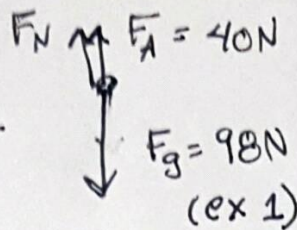 F_N F_A = 40N
F_g = 98N
(ex 1)